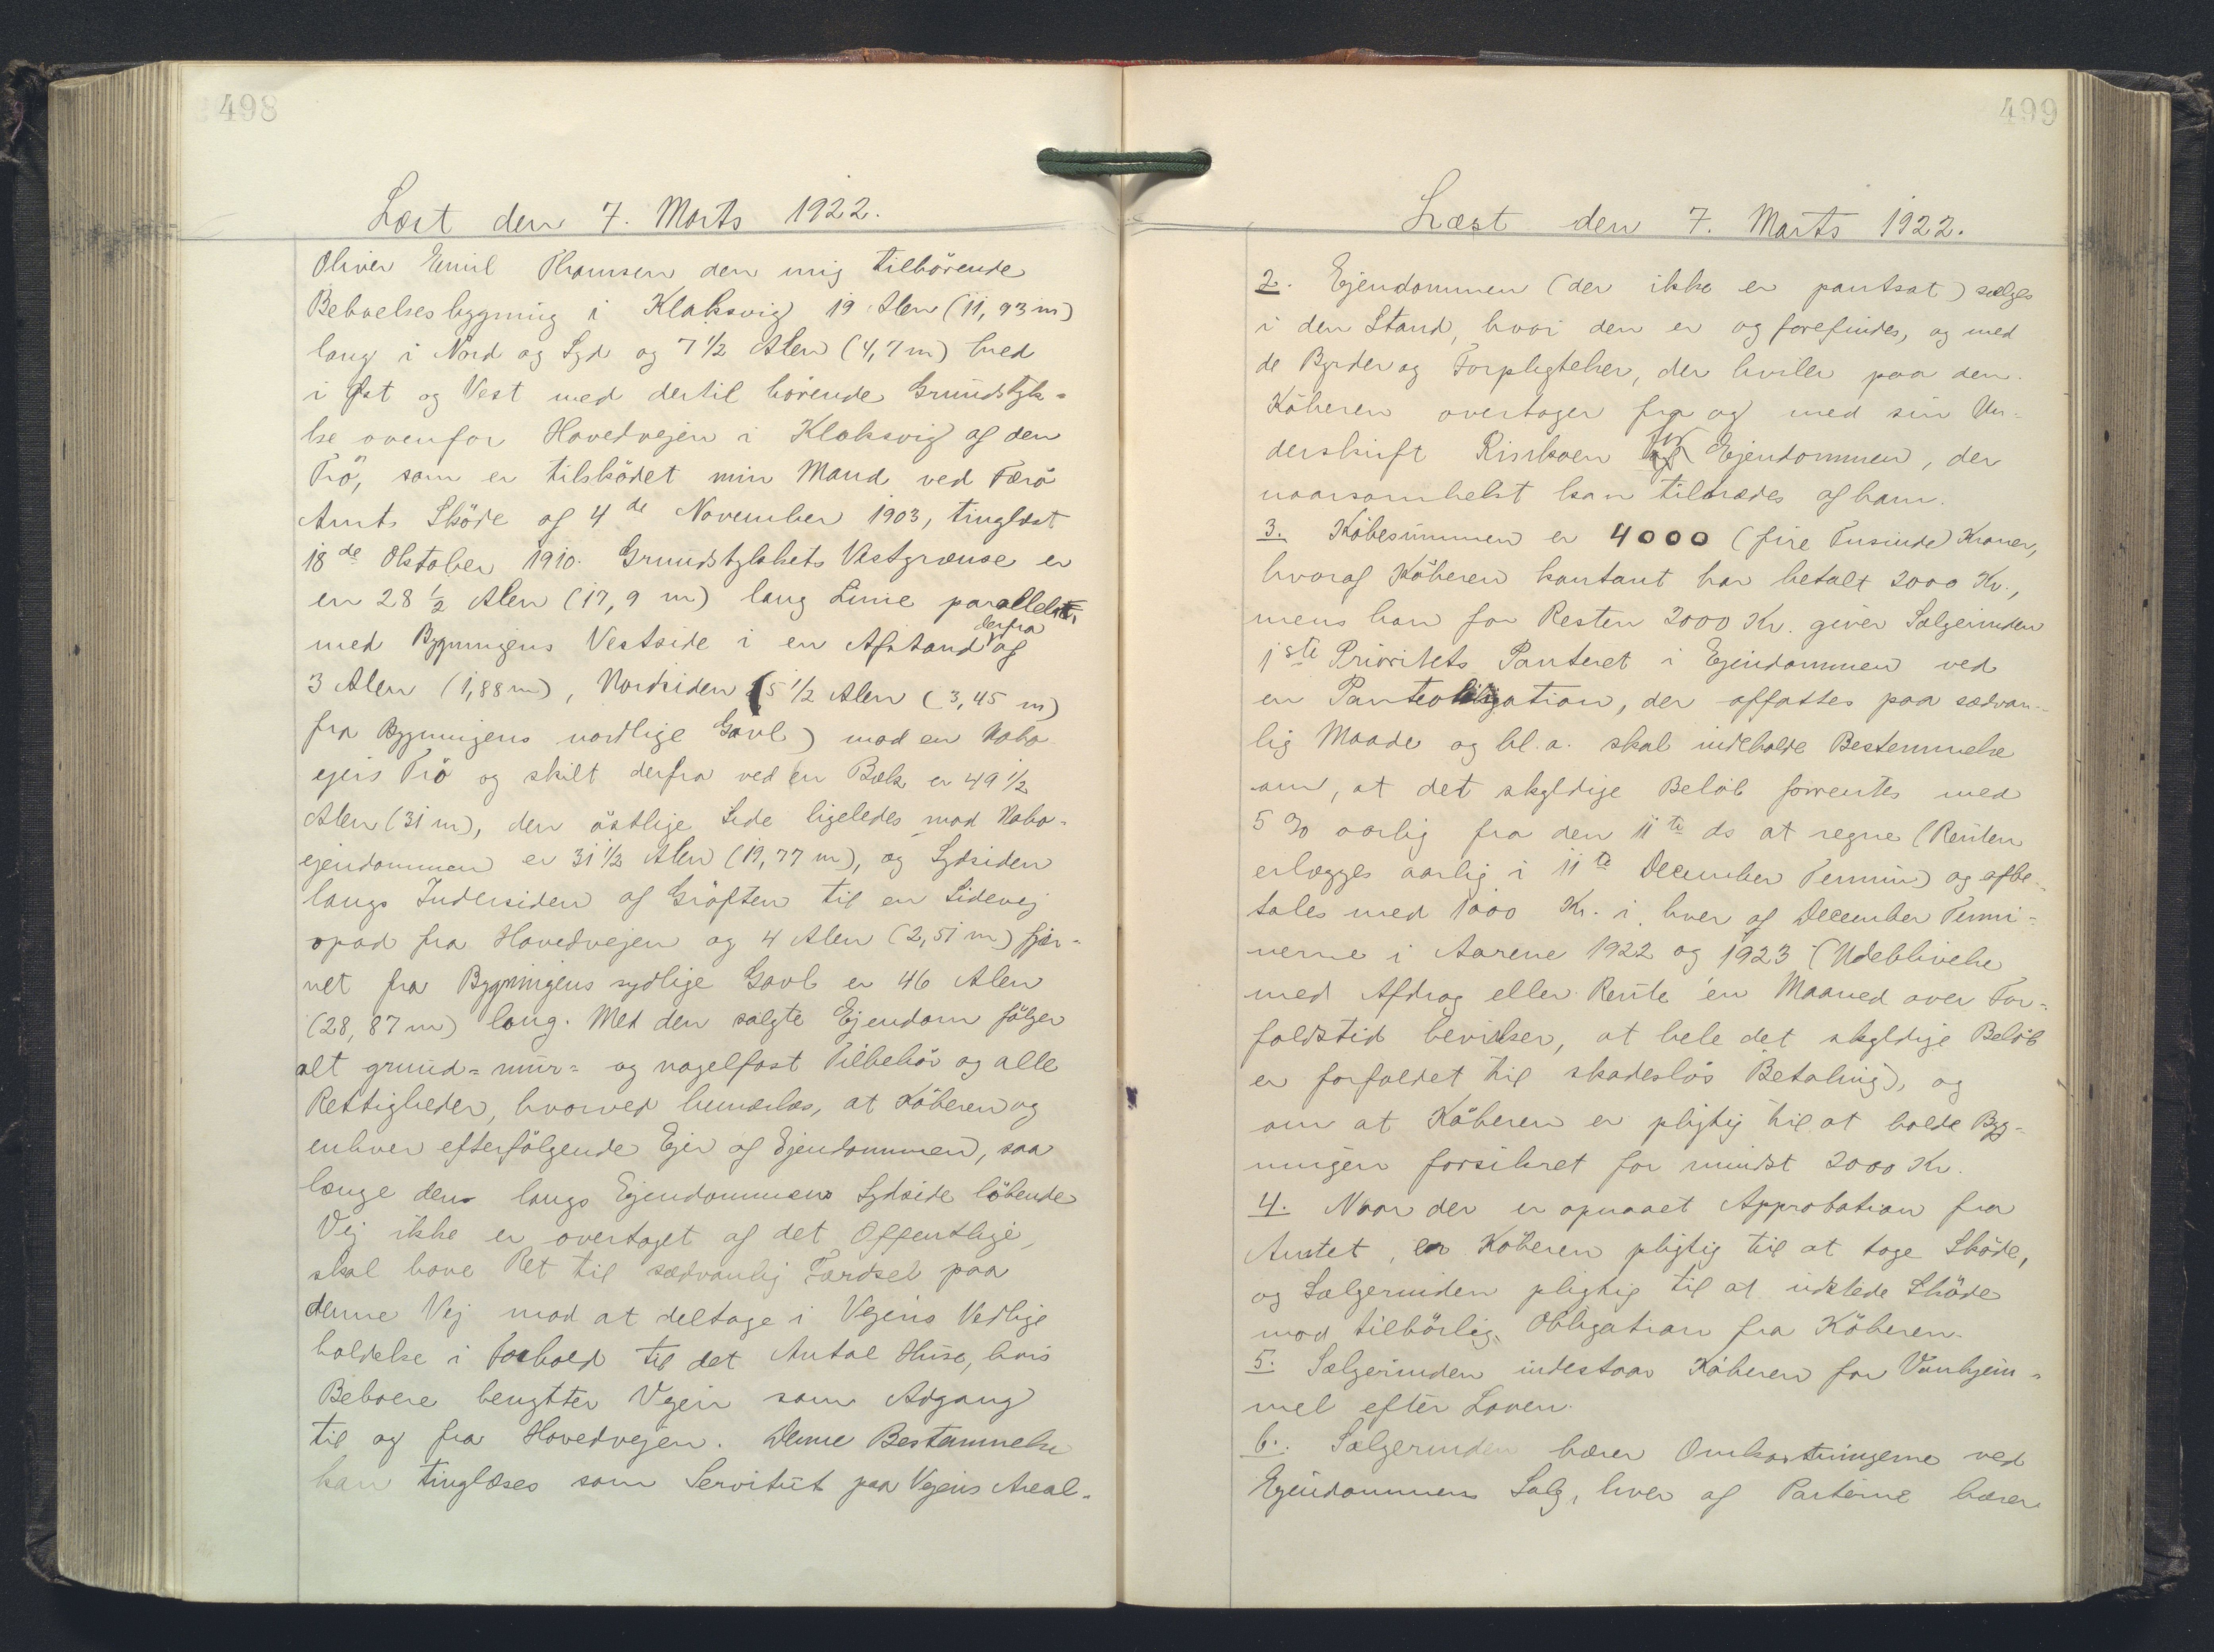 498
Læst den 7. Marts 1922.
Oliver Emil Thomsen den mig tilhörende
Beboelsesbygning i Klaksvig 19 Alen (11,93 m)
lang i Nord og Syd og 7 1/2 Alen (4,7 m) bred
i Øst og Vest med dertil hörende Grundstyk=
ke ovenfor Hovedvejen i Klaksvig af den
Trö, som er tilsködet min Mand ved Færö
Amts Sköde af 4de November 1903, tinglæst
18de Oktober 1910. Grundstykkets Vestgrænse er
en 28 1/2 Alen (17,9 m) lang Linie parallel
med Bygningens Vestside i en Afstand derfra af
3 Alen (1,88 m), Nordsiden (5 1/2 Alen (3,45 m)
fra Bygningens nordlige Gavl) mod en Nabo
ejers Trö og skilt derfra ved en Bæk er 49 1/2
Alen (31 m), den östlige Side ligeledes mod Nabo=
ejendommen er 31 1/2 Alen (19,77 m), og Sydsiden
langs Indersiden af Gröften til en Sidevej
opad fra Hovedvejen og 4 Alen (2,51 m) fjær=
net fra Bygningens sydlige Gavl er 46 Alen
(28,87 m) lang. Med den solgte Ejendom fölger
alt grund= mur= og nagelfast Tilbehör og alle
Rettigheder, hvorved bemærkes, at Köberen og
enhver efterfölgende Ejer af Ejendommen, saa
længe den langs Ejendommens Sydside löbende
Vej ikke er overtaget af det Offentlige,
skal have Ret til sædvanlig Færdsel paa
denne Vej mod at deltage i Vejens Vedlige
holdelse i Forhold til det Antal Huse, hvis
Beboere benytter Vejen som Adgang
til og fra Hovedvejen. Denne Bestemmelse
kan tinglæses som Servitut paa Vejens Areal.
499
Læst den 7. Marts 1922.
2. Ejendommen (der ikke er pantsat) sælges
i den Stand, hvori den er og forefindes, og med
de Byrder og Forpligtelser, der hviler paa den.
Köberen overtager fra og med sin Un=
derskrift Risikoen for Ejendommen, der
naarsomhelst kan tiltrædes af ham.
3. Köbesummen er 4000 (fire Tusinde) Kroner,
hvoraf Köberen kontant har betalt 2000 Kr.,
mens han for Resten 2000 Kr. giver Sælgerinden
1ste Prioritets Panteret i Ejendommen ved
en Panteobligation, der affattes paa sædvan=
lig Maade og bl. a. skal indeholde Bestemmelse
om, at det skyldige Belöb forrentes med
5 % aarlig fra den 11te ds at regne (Renten
erlægges aarlig i 11te December Termin) og afbe=
tales med 1000 Kr. i hver af December Termi=
nerne i Aarene 1922 og 1923 (Udeblivelse
med Afdrag eller Rente en Maaned over For=
faldstid bevirker, at hele det skyldige Belöb
er forfaldet til skadeslös Betaling), og
om at Köberen er pligtig til at holde Byg=
ningen forsikret for mindst 2000 Kr.
4. Naar der er opnaaet Approbation fra
Amtet, er Köberen pligtig til at tage Sköde,
og Sælgerinden pligtig til at udstede Sköde
mod tilbörlig Obligation fra Köberen.
5. Sælgerinden indestaar Köberen for Vanhjem=
mel efter Loven.
6. Sælgerinden bærer Omkostningerne ved
Ejendommens Salg, hver af Parterne bærer